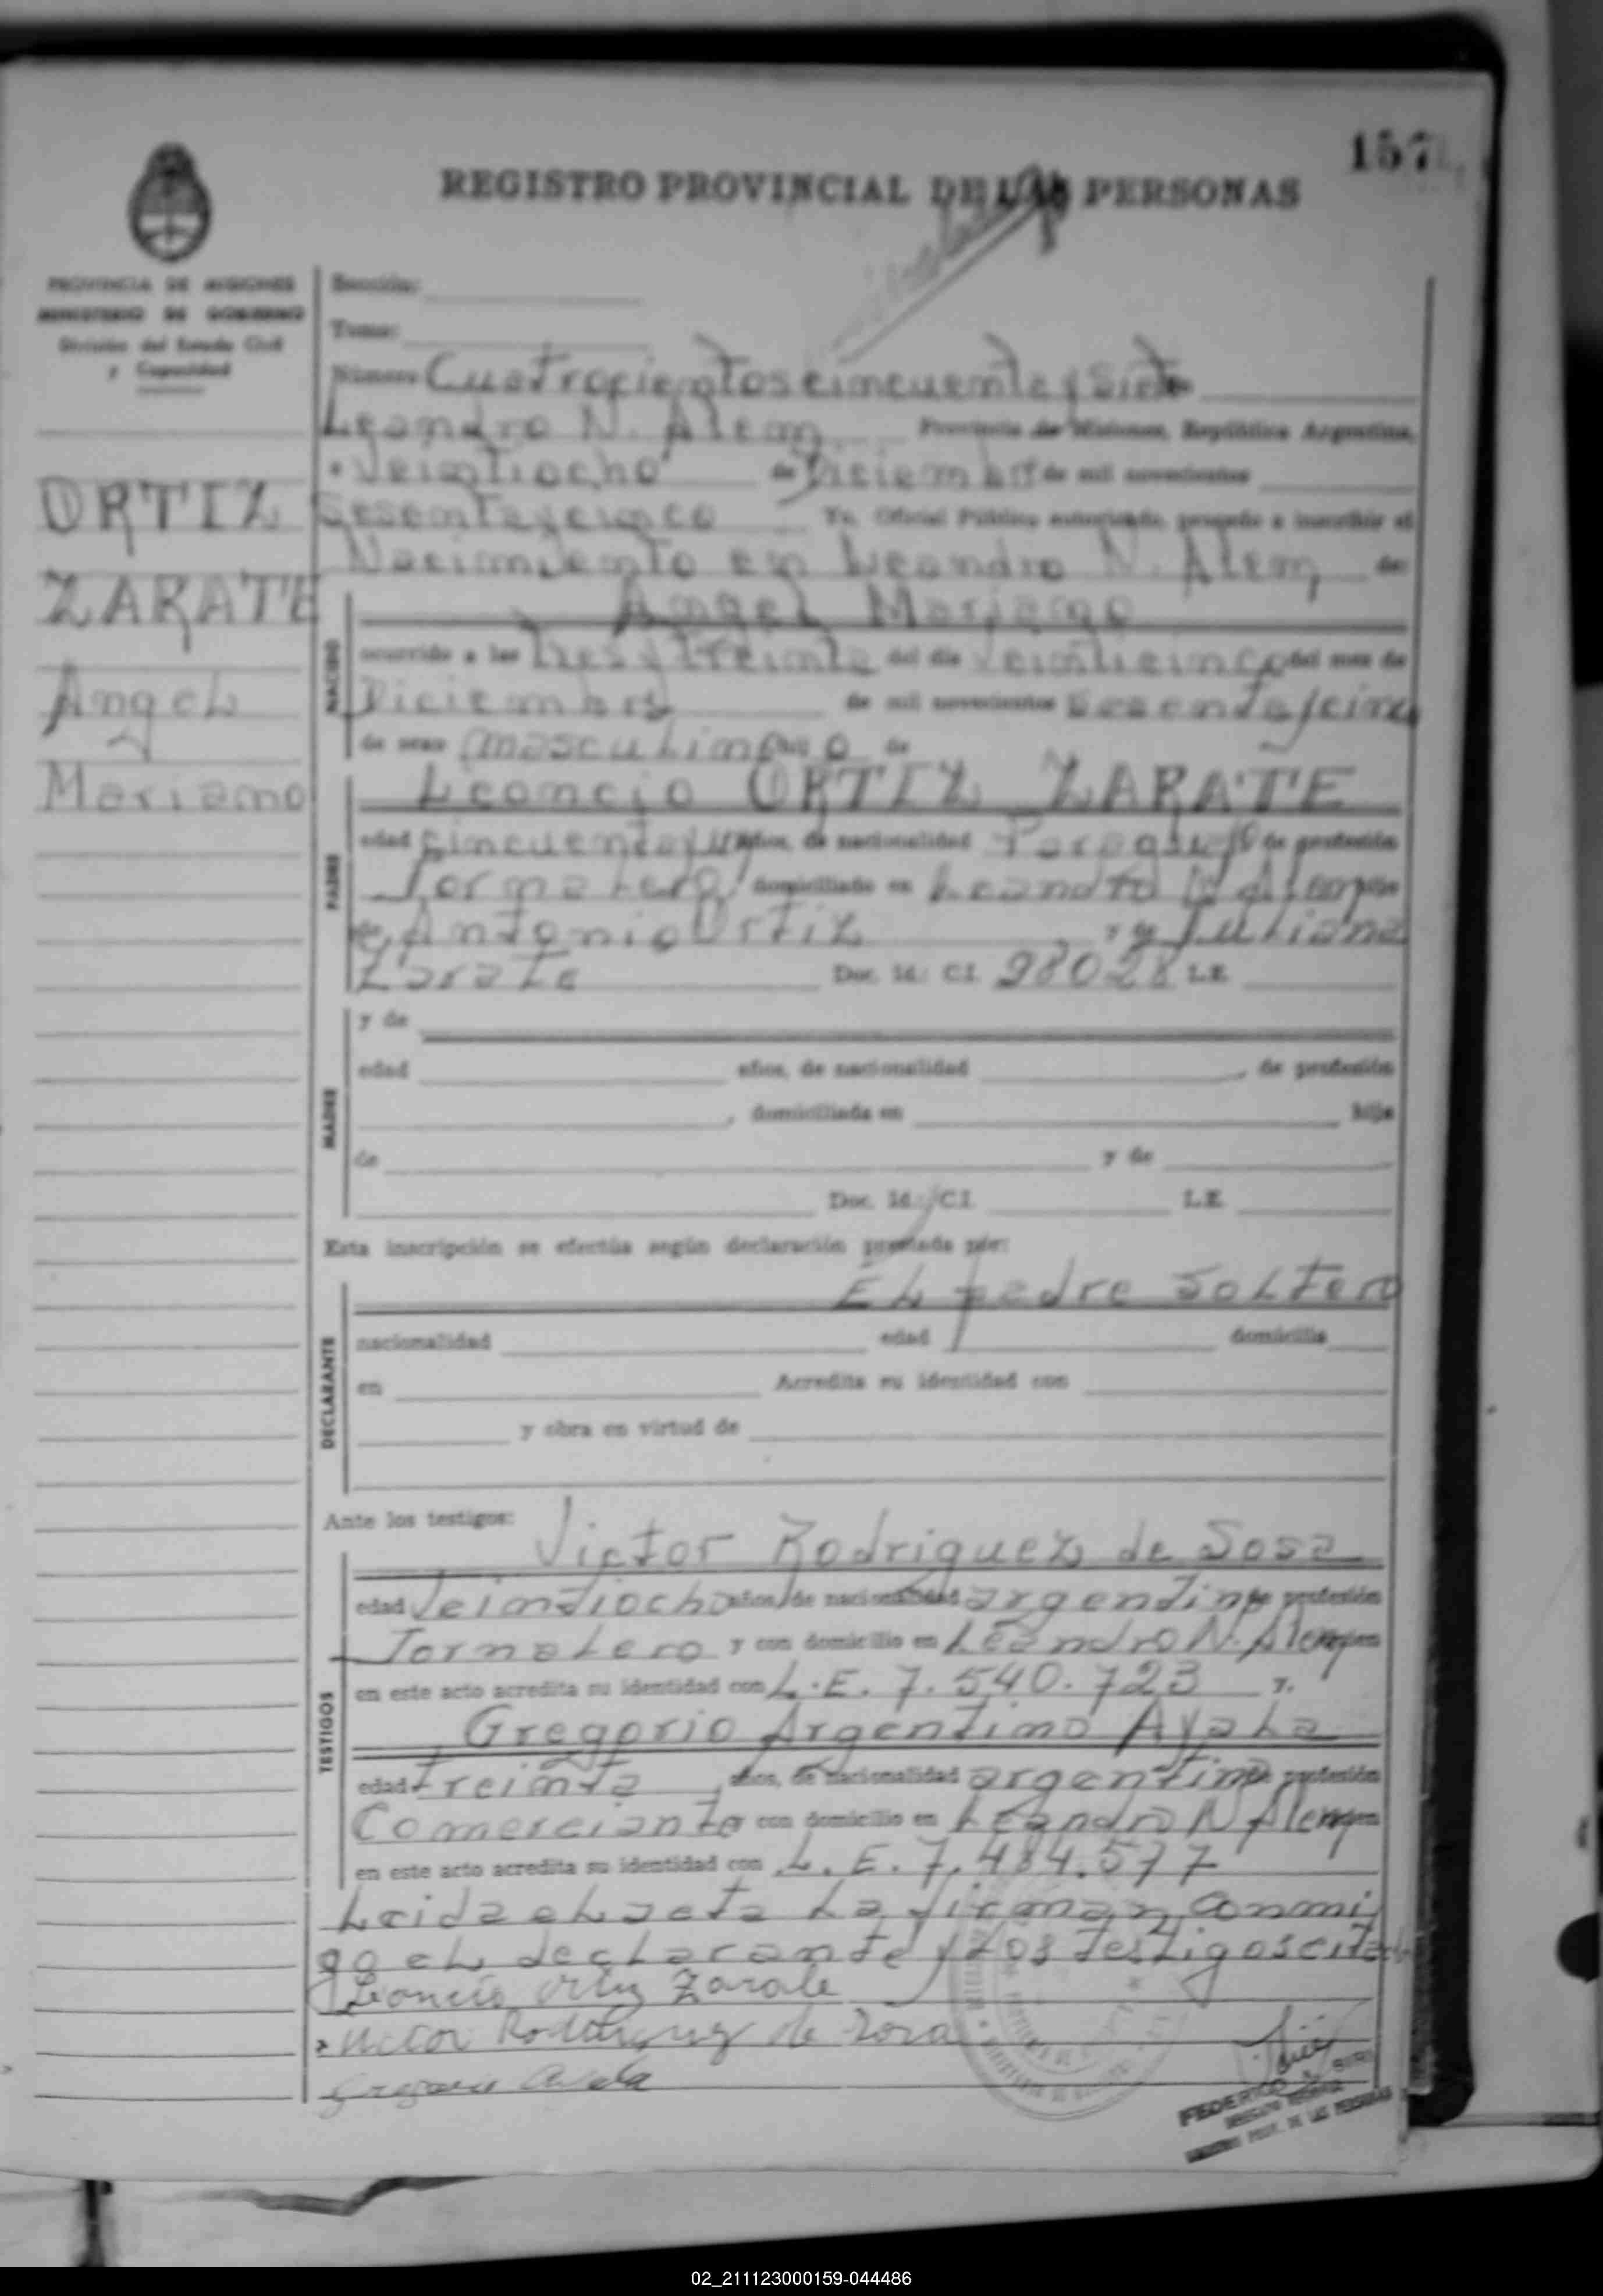 157
REGISTRO PROVINCIAL DE LAS PERSONAS
PROVINCIA DE MISIONES
MINISTERIO DE GOBIERNO
División del Estado Civil
y Capacidad
ORTIZ
ZARATE
Angel
Mariano
Sección:
Tomo:
Número Cuatrocientos cincuenta y siete
Leandro N. Alem Provincia de Misiones, República Argentina,
a Veintiocho de Diciembre de mil novecientos
Sesenta y cinco Yo, Oficial Público autorizado, procedo a inscribir el
Nacimiento en Leandro N. Alem de:
NACIDO
Angel Mariano
ocurrido a las Tres y Treinta del día veinticinco del mes de
Diciembre de mil novecientos Sesenta y cinco
de sexo masculino hijo de
PADRE
Leoncio ORTIZ ZARATE
edad cincuenta y un años, de nacionalidad Paraguayo de profesión
Jornalero domiciliado en Leandro N. Alem hijo
de Antonio Ortiz y de Juliana
Zarate Doc. Id.: C.I. 98028 L.E.
MADRE
y de
edad años, de nacionalidad , de profesión
, domiciliada en hija
de y de
Doc. Id.: C.I. L.E.
Esta inscripción se efectúa según declaración prestada por:
DECLARANTE
El padre Soltero
nacionalidad edad domicilio
en Acredita su identidad con
y obra en virtud de
Ante los testigos:
TESTIGOS
Victor Rodriguez de Sosa
edad Veintiocho años, de nacionalidad argentino de profesión
Jornalero y con domicilio en Leandro N. Alem quien
en este acto acredita su identidad con L.E. 7.540.723 y.
Gregorio Argentino Ayala
edad treinta , años, de nacionalidad argentino de profesión
Comerciante con domicilio en Leandro N Alem quien
en este acto acredita su identidad con L.E. 7.484.577
Leida el acta La firman conmi
go el declarante y Los testigos citados
Leoncio Ortiz Zarate
Victor Rodriguez de Sosa
Gregorio Ayala
FEDERICO
DE LAS PERSONAS
02_211123000159-044486